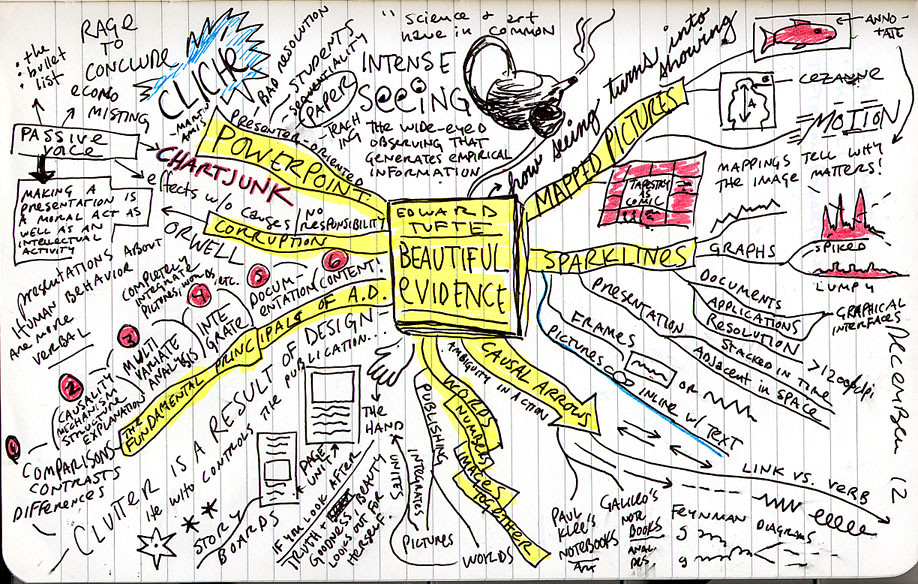 EDWARD
TUFTE
BEAUTIFUL
EVIDENCE
"science & art
have in common
INTENSE
SEEING
THE WIDE-EYED
OBSERVING THAT
GENERATES EMPIRICAL
INFORMATION
how seeing turns into
showing
MAPPED PICTURES
ANNO-
TATE
CEZANNE
A
MOTION
MAPPINGS TELL WHY
THE IMAGE MATTERS!
TAPESTRY
& COMIC
SPARKLINES
GRAPHS
SPIKED
LUMPY
DOCUMENTS
APPLICATIONS
RESOLUTION
GRAPHICAL
INTERFACES
>1200 dpi
PRESENTATION
STACKED IN TIME
ADJACENT IN SPACE
FRAMES
OR
PICTURES INLINE W/ TEXT
December 12
CAUSAL ARROWS
AMBIGUITY IN ACTION
LINK VS. VERB
PAUL
KLEE'S
NOTEBOOKS
ART
GALILEO'S
NOTE
BOOKS
FEYNMAN
DIAGRAMS
WORDS
NUMBERS
IMAGES
TOGETHER
PUBLISHING
INTEGRATES
UNITES
PICTURES
WORLDS
THE
HAND
IF YOU LOOK AFTER
TRUTH &
GOODNESS, BEAUTY
LOOKS OUT FOR
HERSELF.
PAGE
UNIT
STORY
BOARDS
CLUTTER IS A RESULT OF DESIGN
HE WHO CONTROLS THE PUBLICATION..
THE
FUNDAMENTAL PRINCIPALS OF A.D.
1
COMPARISONS
CONTRASTS
DIFFERENCES
2
CAUSALITY
MECHANISM
STRUCTURE
EXPLANATION
3
MULTI
VARIATE
ANALYSIS
4
INTE
GRATE
COMPLETELY
INTEGRATE
PICTURES, WORDS, ETC.
5
DOCUM
ENTATION
6
CONTENT!
CORRUPTION
effects w/o causes
NO
RESPONSIBILITY
ORWELL
PRESENTATIONS ABOUT
HUMAN BEHAVIOR
ARE MORE
VERBAL
CHARTJUNK
PASSIVE
VOICE
MAKING A
PRESENTATION IS
A MORAL ACT AS
WELL AS AN
INTELLECTUAL
ACTIVITY
: the
: bullet
: list
RAGE
TO
CONCLUDE
ECONO
MISTING
POWERPOINT
PRESENTER-ORIENTED
CLICHE
BAD RESOLUTION
STUDENTS
SEQUENTIALITY
PAPER
TEACH
ING